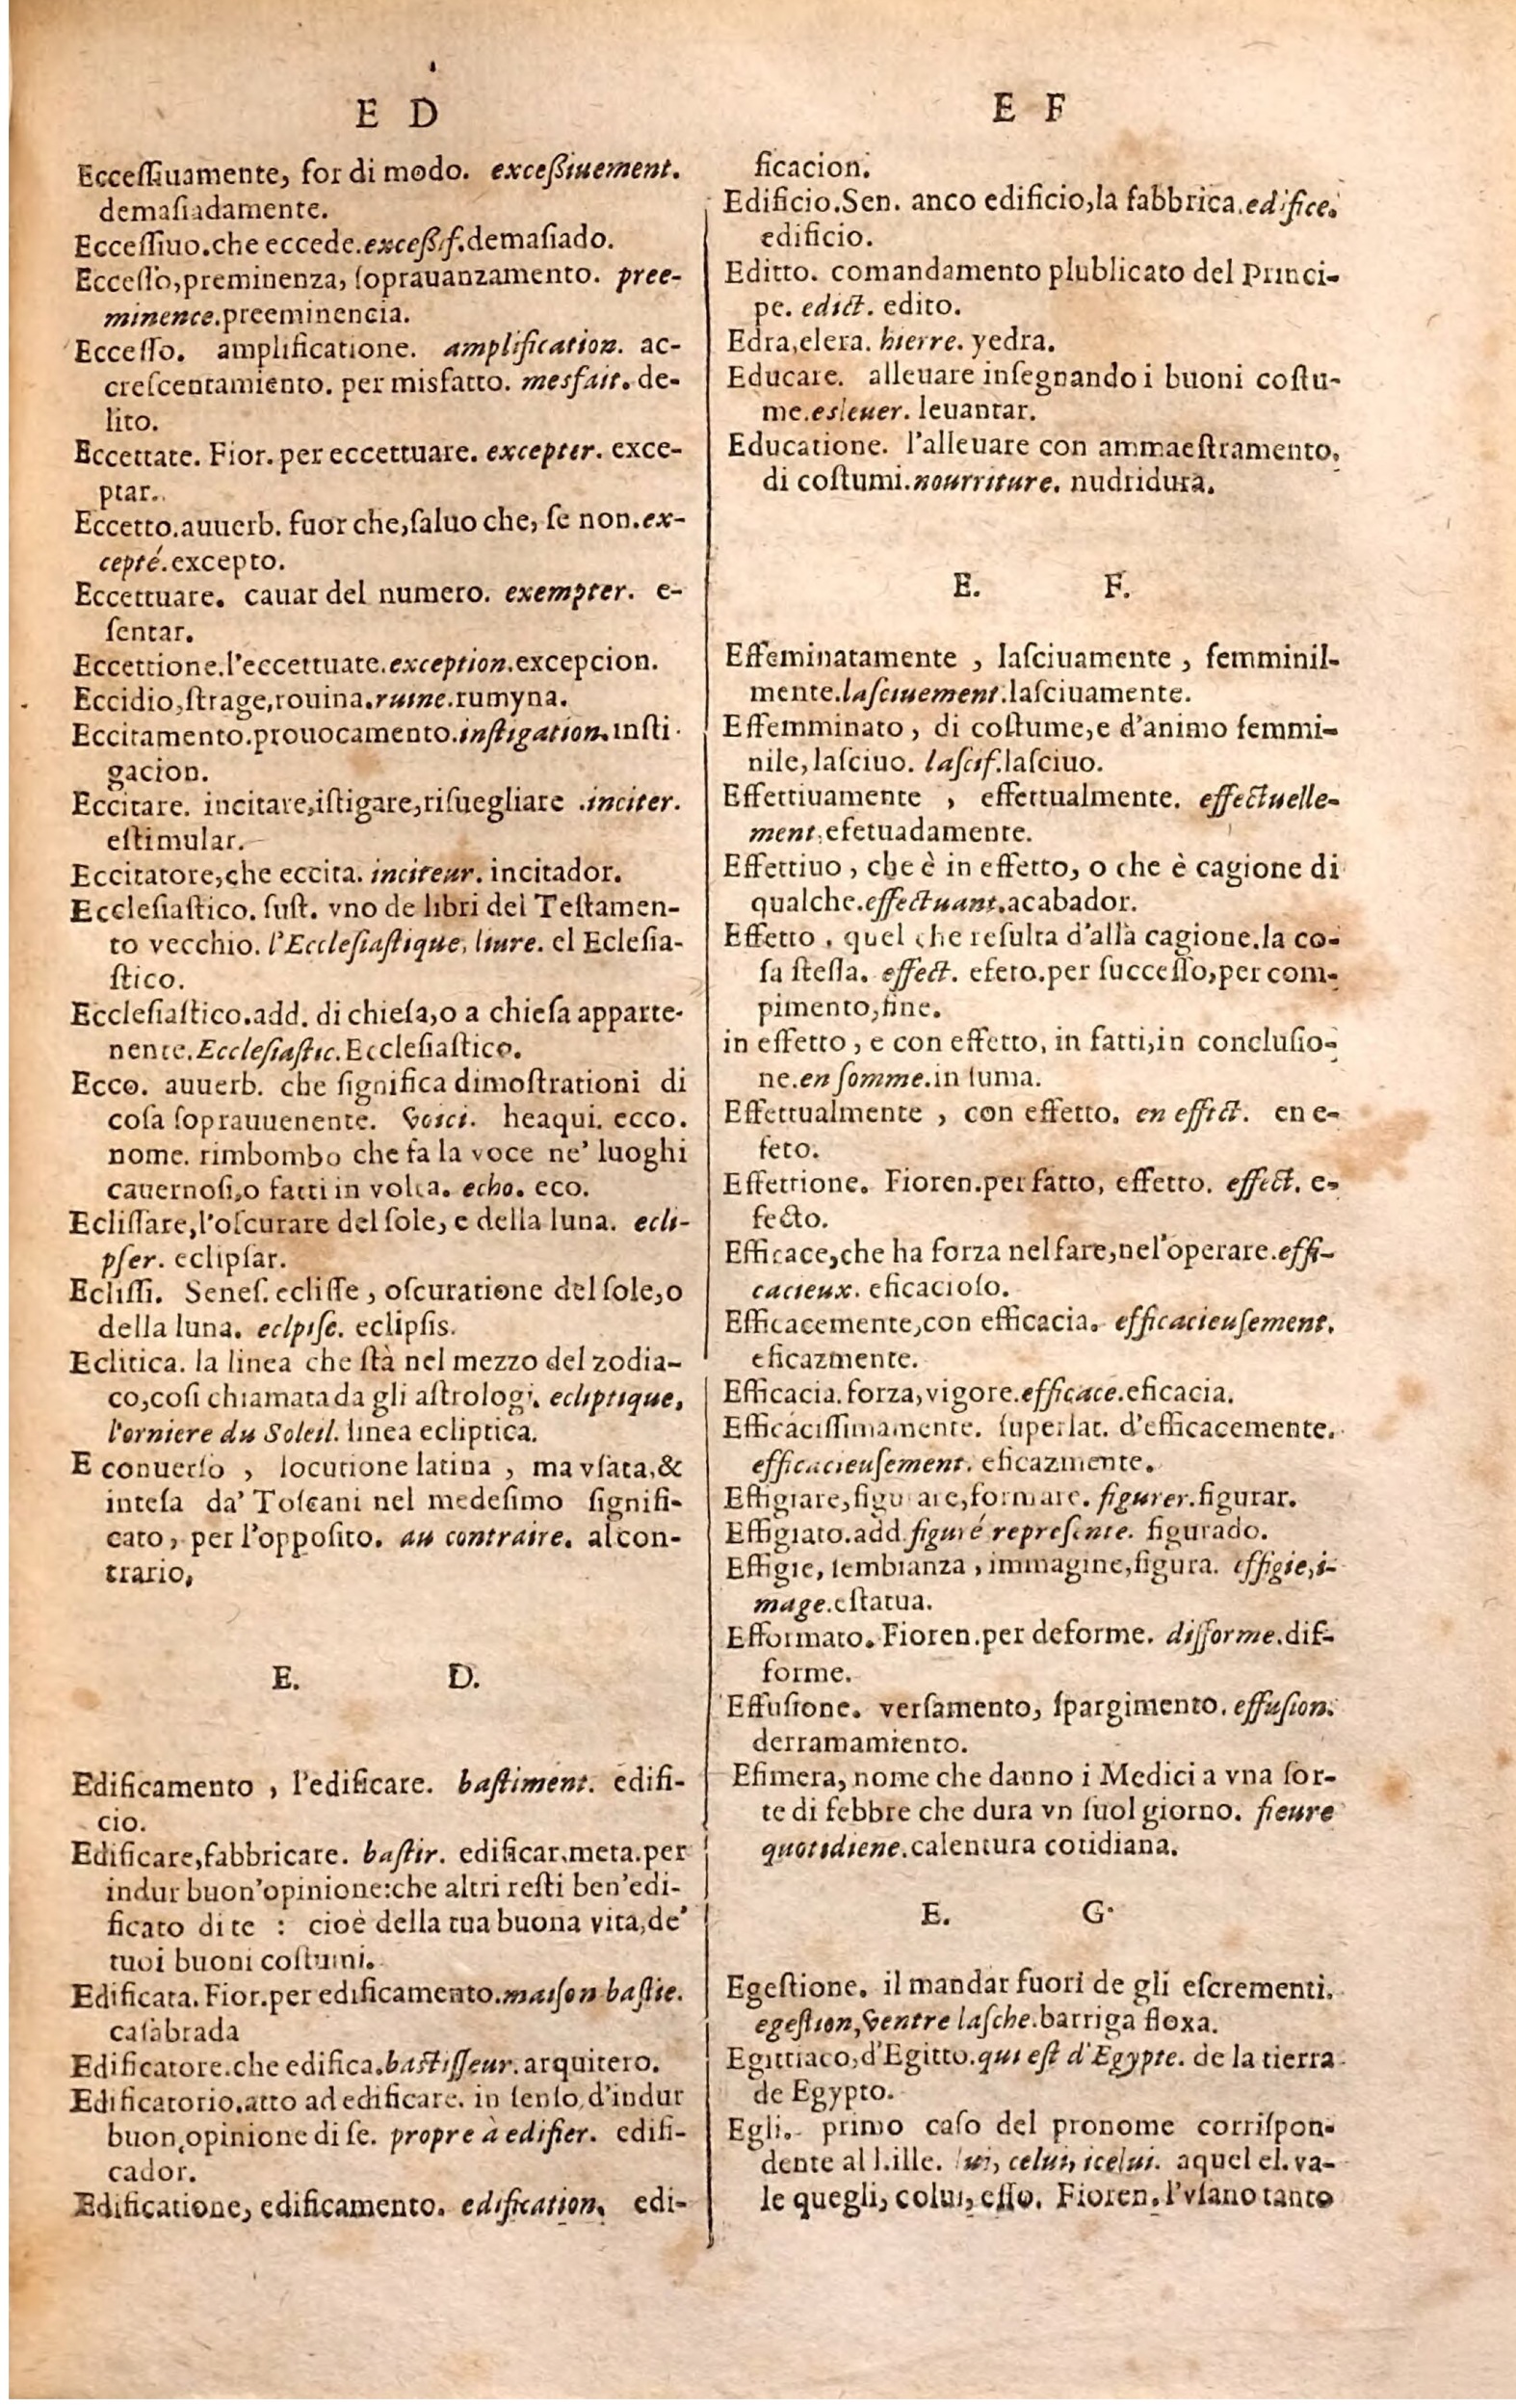 E D
Ecceſſiuamente, for di modo. exceßiuement.
demaſiadamente.
Ecceſſiuo.che eccede.exceßif.demaſiado.
Ecceſſo,preminenza, ſoprauanzamento. pree-
minence.preeminencia.
Ecceſſo. amplificatione. amplification. ac-
creſcentamiento. per misfatto. mesfait. de-
lito.
Eccettate. Fior. per eccettuare. excepter. exce-
ptar.
Eccetto.auuerb. fuor che,ſaluo che, ſe non.ex-
cepté.excepto.
Eccettuare. cauar del numero. exempter. e-
ſentar.
Eccettione.l'eccettuate.exception.excepcion.
Eccidio,ſtrage,rouina.ruine.rumyna.
Eccitamento.prouocamento.inſtigation.inſti-
gacion.
Eccitare. incitare,iſtigare,riſuegliare .inciter.
eſtimular.
Eccitatore,che eccita. inciteur. incitador.
Eccleſiaſtico. ſuſt. vno de libri del Teſtamen-
to vecchio. l'Eccleſiaſtique, liure. el Ecleſia-
ſtico.
Eccleſiaſtico.add. di chieſa,o a chieſa apparte-
nente.Eccleſiaſtic.Eccleſiaſtico.
Ecco. auuerb. che ſignifica dimoſtrationi di
coſa ſoprauuenente. Voici. heaqui. ecco.
nome. rimbombo che fa la voce ne' luoghi
cauernoſi,o fatti in volta. echo. eco.
Ecliſſare,l'oſcurare del ſole, e della luna. ecli-
pſer. eclipſar.
Ecliſſi. Seneſ. ecliſſe, oſcuratione del ſole,o
della luna. eclpiſe. eclipſis.
Eclitica. la linea che ſtà nel mezzo del zodia-
co,coſi chiamata da gli aſtrologi. ecliptique,
l'orniere du Soleil. linea ecliptica.
E conuerſo , locutione latina , ma vſata,&
inteſa da' Toſcani nel medeſimo ſignifi-
cato, per l'oppoſito. au contraire. al con-
trario,
E. D.
Edificamento , l'edificare. baſtiment. edifi-
cio.
Edificare,fabbricare. baſtir. edificar.meta.per
indur buon'opinione:che altri reſti ben'edi-
ficato di te : cioè della tua buona vita,de'
tuoi buoni coſtumi.
Edificata. Fior.per edificamento.maiſon baſtie.
caſàbrada
Edificatore.che edifica.baſtiſſeur.arquitero.
Edificatorio.atto ad edificare. in ſenſo,d'indur
buon opinione di ſe. propre à edifier. edifi-
cador.
Edificatione, edificamento. edification. edi-
E F
ficacion.
Edificio.Sen. anco edificio,la fabbrica.edifice.
edificio.
Editto. comandamento plublicato del Princi-
pe. edict. edito.
Edra,elera. hierre. yedra.
Educare. alleuare inſegnando i buoni coſtu-
me.esleuer. leuantar.
Educatione. l'alleuare con ammaeſtramento,
di coſtumi.nourriture. nudridura.
E. F.
Effeminatamente , laſciuamente , femminil-
mente.laſciuement.laſciuamente.
Effemminato, di coſtume,e d'animo femmi-
nile,laſciuo. laſcif.laſciuo.
Effettiuamente , effettualmente. effectuelle-
ment.efetuadamente.
Effettiuo, che è in effetto, o che è cagione di
qualche.effectuant.acabador.
Effetto . quel che reſulta d'alla cagione.la co-
ſa ſteſſa. effect. efeto.per ſucceſſo,per com-
pimento,fine.
in effetto, e con effetto, in fatti,in concluſio-
ne.en ſomme.in ſuma.
Effettualmente , con effetto. en effect. en e-
feto.
Effettione. Fioren.per fatto, effetto. effect. e-
fecto.
Efficace,che ha forza nel fare,nel'operare.effi-
cacieux. eficacioſo.
Efficacemente,con efficacia. efficacieuſement.
eficazmente.
Efficacia.forza,vigore.efficace.eficacia.
Efficaciſſimamente. ſuperlat. d'efficacemente.
efficacieuſement. eficazmente.
Effigiare,figurare,formare. figurer.figurar.
Effigiato.add.figuré repreſente. figurado.
Effigie, ſembianza, immagine,figura. effigie,i-
mage.eſtatua.
Efformato. Fioren.per deforme. difforme.dif-
forme.
Effuſione. verſamento, ſpargimento. effuſion.
derramamiento.
Efimera, nome che danno i Medici a vna ſor-
te di febbre che dura vn ſuol giorno. fieure
quotidiene.calentura cotidiana.
E. G.
Egeſtione. il mandar fuori de gli eſcrementi.
egeſtion,Ventre laſche.barriga floxa.
Egittiaco,d'Egitto.qui eſt d'Egypte. de la tierra
de Egypto.
Egli. primo caſo del pronome corriſpon-
dente al l.ille. lui, celui, icelui. aquel el. va-
le quegli, colui, eſſo. Fioren.l'vſano tanto